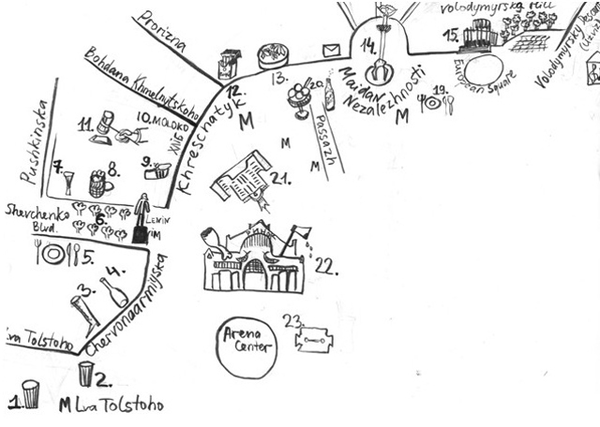 Prorizna
Bohdana Khmelnytskoho
Volodymyrska Hill
Volodymyrsky
15.
14.
13.
12.
Maidan
Nezalezhnosti
M
European Square
19.
20.
Passazh
M
M
M
Khreschatyk
10. MOLOKO
11.
Pushkinska
7.
8.
9.
Shevchenko
Blvd.
6.
LENIN
M
5.
4.
3.
Chervonaarmijska
21.
22.
Arena
Center
23.
Lva Tolstoho
2.
1.
M Lva Tolstoho